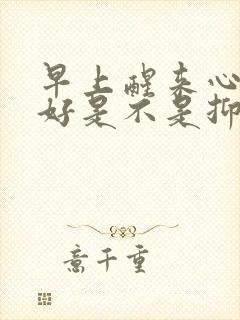 早上醒来心
好是不是抑
意千重